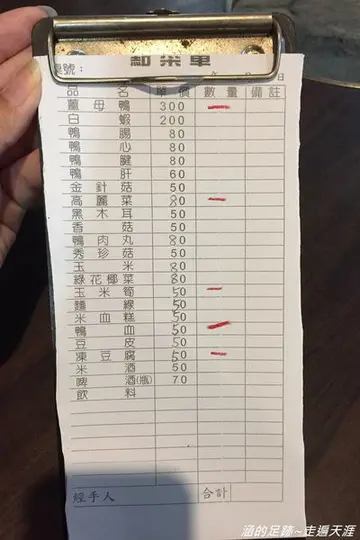 點菜單
桌號：
日
品名 單價 數量 備註
薑母鴨 300
白蝦 200
鴨腸 80
鴨心 80
鴨腱 80
鴨肝 60
金針菇 50
高麗菜 80
黑木耳 50
香菇 50
鴨肉丸 80
秀珍菇 50
玉米 80
綠花椰菜 80
玉米筍 50
麵線 50
米血糕 50
鴨血 50
豆皮 50
凍豆腐 50
米酒 50
啤酒(瓶) 70
飲料
經手人 合計
涵的足跡~走遍天涯